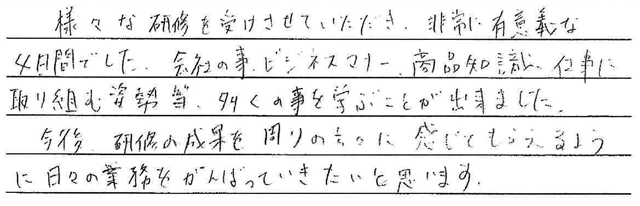 様々な研修を受けさせていただき、非常に有意義な
4日間でした。会社の事、ビジネスマナー、商品知識、仕事に
取り組む姿勢等、多くの事を学ぶことが出来ました。
今後、研修の成果を周りの方々に感じてもらえるよう
に日々の業務をがんばっていきたいと思います。